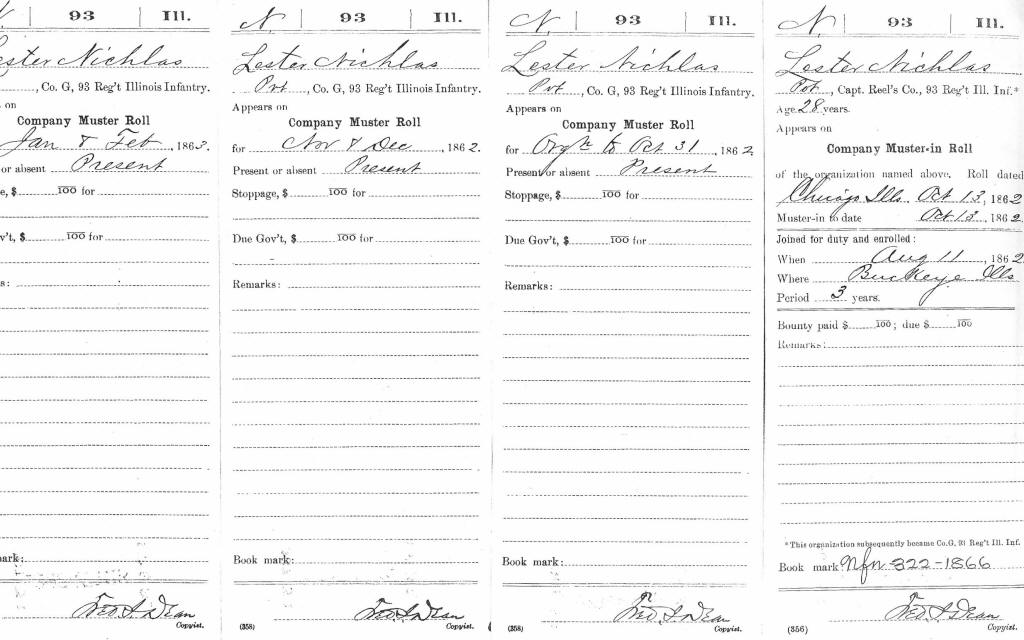 93 | Ill.
Lester Nichlas
, Co. G, 93 Reg't Illinois Infantry.
s on
Company Muster Roll
Jan & Feb, 1863.
or absent Present
e, $ 100 for
v't, $ 100 for
s:
ark:
Geo. S. Dean
Copyist.
N. | 93 | Ill.
Lester Nichlas
Pvt, Co. G, 93 Reg't Illinois Infantry.
Appears on
Company Muster Roll
for Nov & Dec, 1862.
Present or absent Present
Stoppage, $ 100 for
Due Gov't, $ 100 for
Remarks:
Book mark:
Geo. S. Dean
(358) Copyist.
N. | 93 | Ill.
Lester Nichlas
Pvt, Co. G, 93 Reg't Illinois Infantry.
Appears on
Company Muster Roll
for Orgn to Oct 31, 1862.
Present or absent Present
Stoppage, $ 100 for
Due Gov't, $ 100 for
Remarks:
Book mark:
Geo. S. Dean
(358) Copyist.
N. | 93 | Ill.
Lester Nichlas
Pvt, Capt. Reel's Co., 93 Reg't Ill. Inf.*
Age 28 years.
Appears on
Company Muster-in Roll
of the organization named above. Roll dated
Chicago Ills. Oct 13, 1862
Muster-in to date Oct 13, 1862
Joined for duty and enrolled:
When Aug 11, 1862
Where Buckeye Ills
Period 3 years.
Bounty paid $ 100; due $ 100
Remarks:
*This organization subsequently became Co. G, 93 Reg't Ill. Inf.
Book mark Nfn 322-1866
Geo. S. Dean
(356) Copyist.